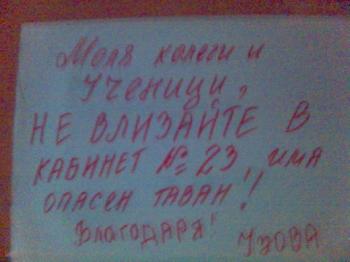 Моля колеги и
Ученици,
НЕ ВЛИЗАЙТЕ В
КАБИНЕТ № 23, има
ОПАСЕН ТАВАН!
Благодаря!
УЗОВА